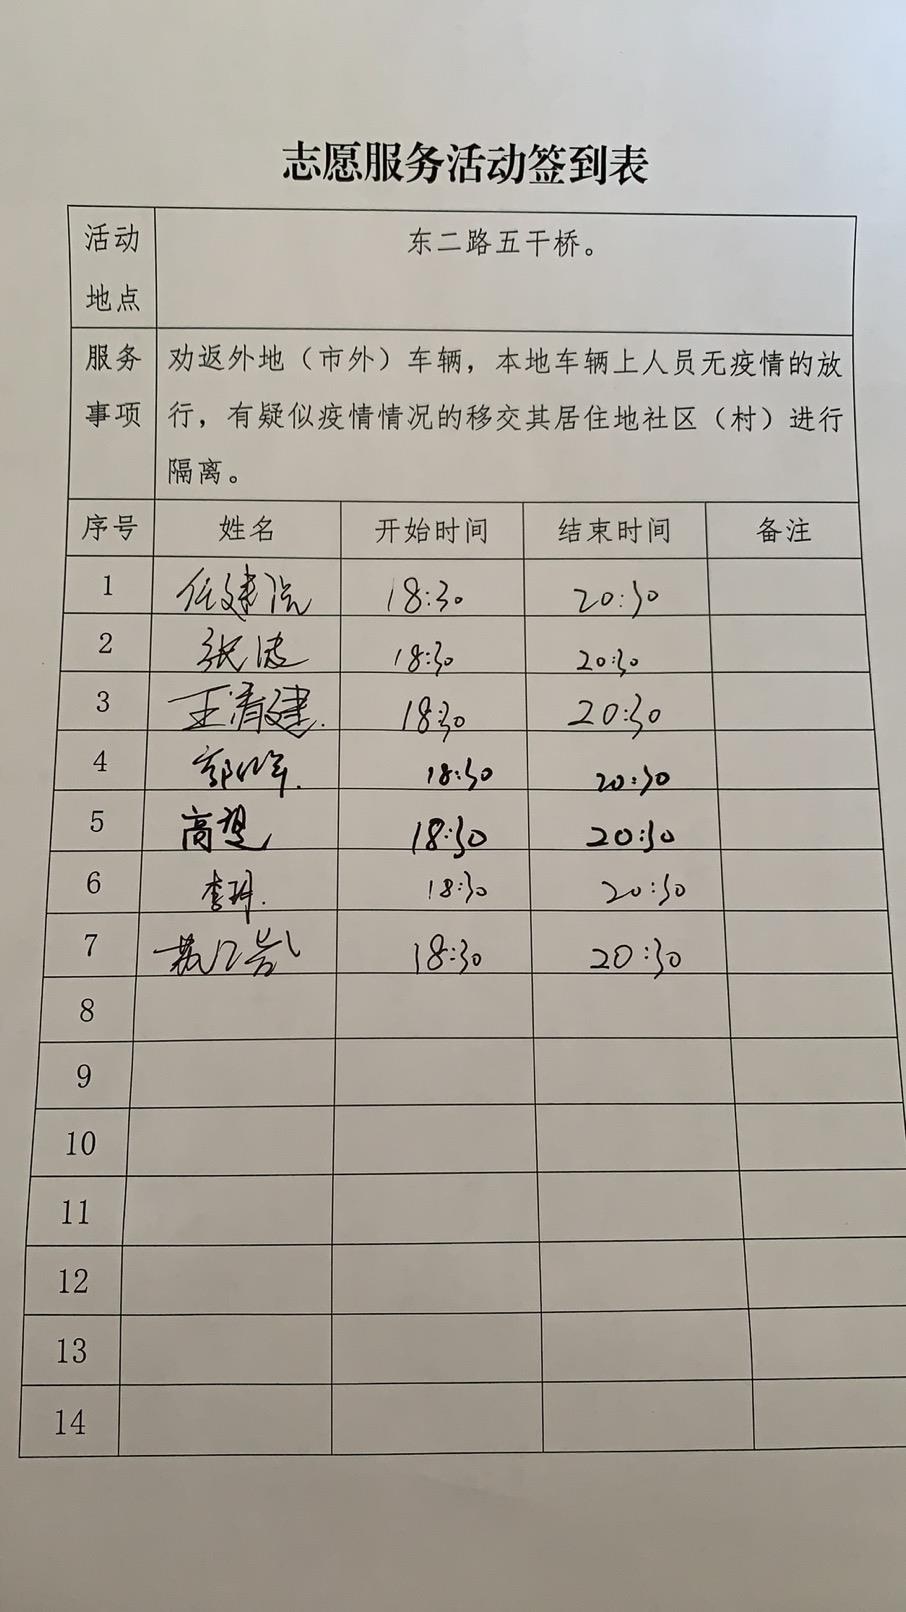 志愿服务活动签到表
活动地点 东二路五干桥。
服务事项 劝返外地（市外）车辆，本地车辆上人员无疫情的放
行，有疑似疫情情况的移交其居住地社区（村）进行
隔离。
序号 姓名 开始时间 结束时间 备注
1 18:30 20:30
2 张 18:30 20:30
3 王清建. 18:30 20:30
4 18:30 20:30
5 高 18:30 20:30
6 李 18:30 20:30
7 18:30 20:30
8
9
10
11
12
13
14